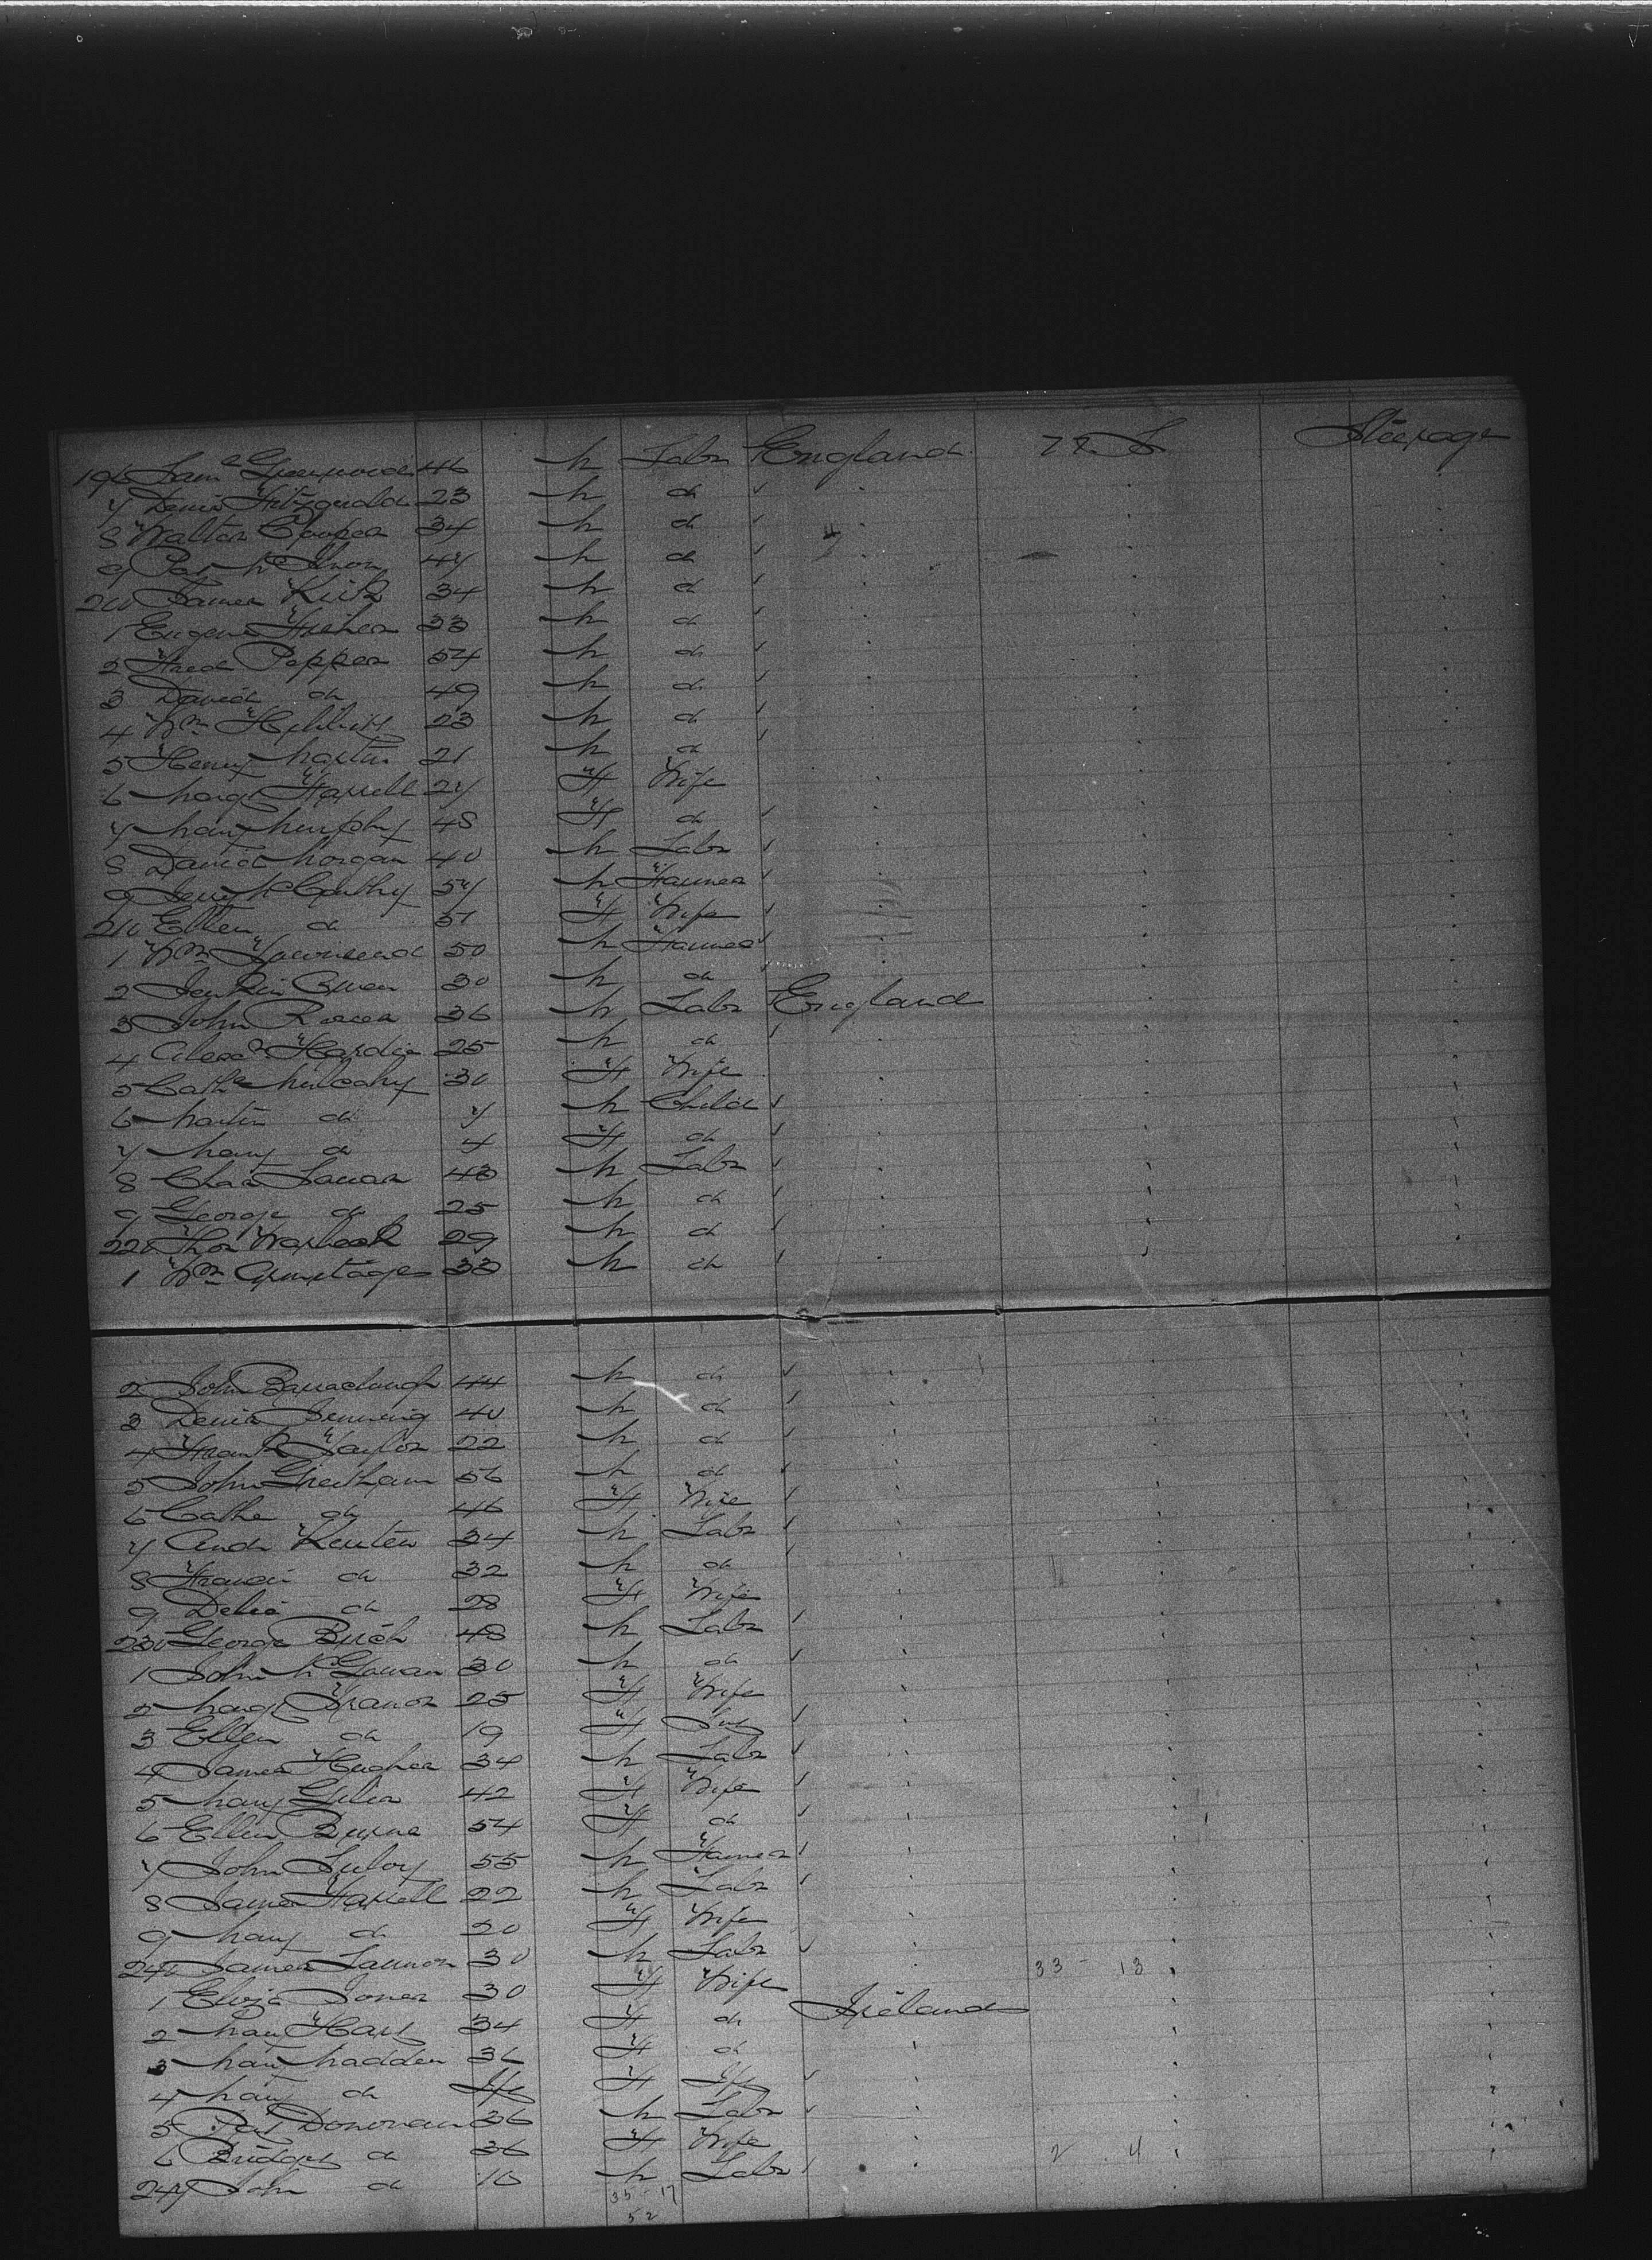 196 Saml Greenwood 46 M Labr England U.S. Steerage
7 Denis Fitzgerald 23 M do
8 Walter Cooper 34 M do
9 Pat 47 M do
200 James Kirk 34 M do
1 Eugene Fisher 33 M do
2 Fred Pepper 54 M do
3 David do 49 M do
4 Wm 23 M do
5 Henry Martin 21 M do
6 Margt Farrell 27 F Wife
7 Mary Murphy 48 F do
8 David Morgan 40 M Labr
9 Jerry McCarthy 57 M Farmer
210 Ellen do 51 F Wife
1 Wm Townsend 50 M Farmer
2 Jenkin Owen 30 M do
3 John 36 M Labr England
4 Alexr Hardie 25 M do
5 Cathe Mulcahy 30 F Wife
6 Martin do 7 M Child
7 Mary do 4 F do
8 Chas 43 M Labr
9 George do 25 M do
220 Thos 29 M do
1 Wm Armitage 33 M do
2 John Barraclough 44 M do
3 Denis 40 M do
4 Frank Taylor 22 M do
5 John 56 M do
6 Cathe do 46 F Wife
7 Andr 34 M Labr
8 Francis do 32 M do
9 Delia do 28 F Wife
230 George Birch 48 M Labr
1 John McGowan 30 M do
2 Margt 25 F Wife
3 Ellen do 19 F
4 James Hughes 34 M Labr
5 Mary 42 F Wife
6 Ellen Byrne 54 F do
7 John 55 M Farmer
8 James Farrell 22 M Labr
9 Mary do 20 F Wife
240 James Lannon 30 M Labr 33 - 13
1 Eliza Jones 30 F Wife
2 Mary Hart 34 F do Ireland
3 Mary Madden 36 F do
4 Mary do F
5 Pat Donovan 36 M Labr
6 Bridget do 36 F Wife 2 4
247 John do 10 M Labr
35 - 17
52